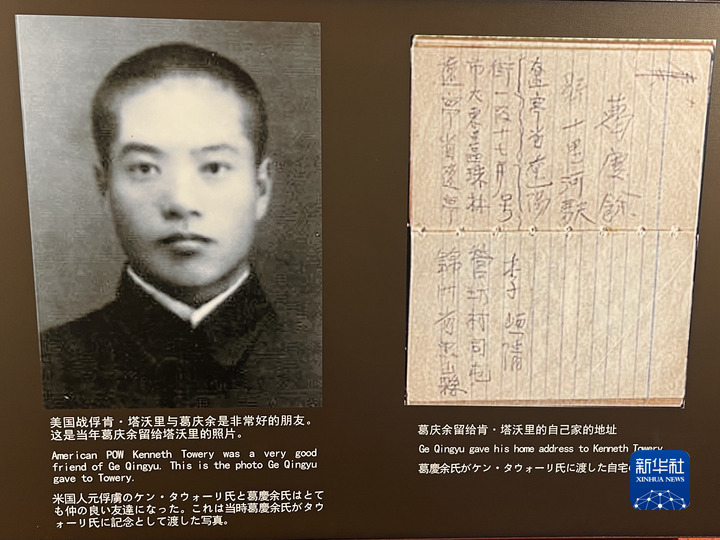 葛慶餘
十里河
遼寧省遼陽
街一段十七号
市大東區珠林
遼寧省
美国战俘肯·塔沃里与葛庆余是非常好的朋友。
这是当年葛庆余留给塔沃里的照片。
American POW Kenneth Towery was a very good
friend of Ge Qingyu. This is the photo Ge Qingyu
gave to Towery.
米国人元俘虜のケン・タウォーリ氏と葛慶余氏はとて
も仲の良い友達になった。これは当時葛慶余氏がタウ
ォーリ氏に記念として渡した写真。
葛庆余留给肯·塔沃里的自己家的地址
Ge Qingyu gave his home address to Kenneth Towery
葛慶余氏がケン・タウォーリ氏に渡した自宅
新华社
XINHUA NEWS